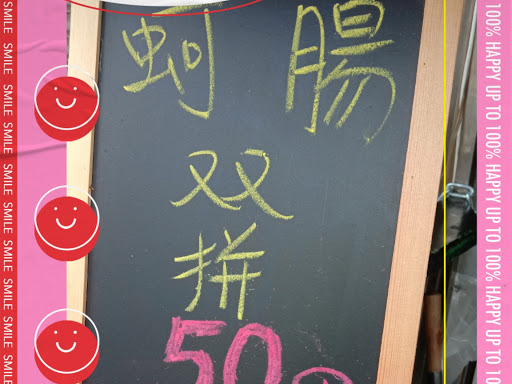 蚵 腸
双
拼
50
SMILE SMILE SMILE SMILE SMILE SMILE SMILE SMILE SMILE SMILE
100% HAPPY UP TO 100% HAPPY UP TO 100% HAPPY UP TO 10